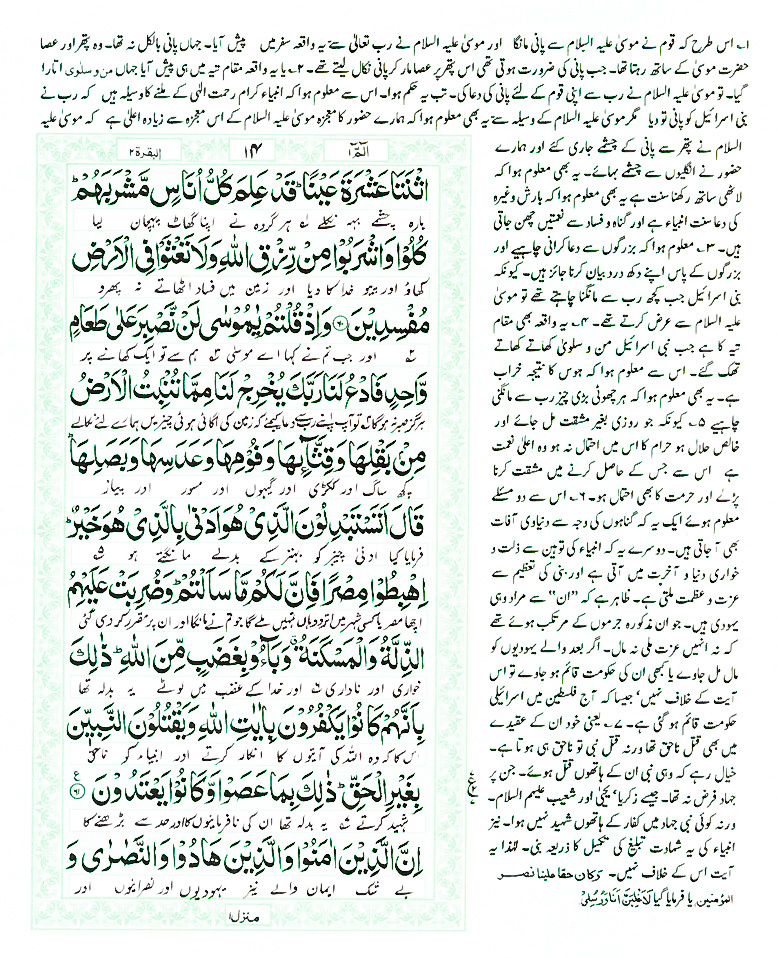 ۱؎ اس طرح کہ قوم نے موسیٰ علیہ السلام سے پانی مانگا اور موسیٰ علیہ السلام نے رب تعالیٰ سے یہ واقعہ سفر میں پیش آیا۔ جہاں پانی بالکل نہ تھا۔ وہ پتھر اور عصا
حضرت موسیٰ کے ساتھ رہتا تھا۔ جب پانی کی ضرورت ہوتی تھی اس پتھر پر عصا مار کر پانی نکال لیتے تھے۔ ۲؎ یا یہ واقعہ مقام تیہ میں ہی پیش آیا جہاں من و سلوی اتارا
گیا۔ تو موسیٰ علیہ السلام نے رب سے اپنی قوم کے لئے پانی کی دعا کی۔ تب یہ حکم ہوا۔ اس سے معلوم ہوا کہ انبیاء کرام رحمت الٰہی کے ملنے کا وسیلہ ہیں کہ رب نے
بنی اسرائیل کو پانی تو دیا مگر موسیٰ علیہ السلام کے وسیلہ سے یہ بھی معلوم ہوا کہ ہمارے حضور کا معجزہ موسیٰ علیہ السلام کے اس معجزہ سے زیادہ اعلیٰ ہے کہ موسیٰ علیہ
السلام نے پتھر سے پانی کے چشمے جاری کئے اور ہمارے
حضور نے انگلیوں سے چشمے بہائے۔ یہ بھی معلوم ہوا کہ
لاٹھی ساتھ رکھنا سنت ہے یہ بھی معلوم ہوا کہ بارش وغیرہ
کی دعا سنت انبیاء ہے اور گناہ و فساد سے نعمتیں چھن جاتی
ہیں۔ ۳؎ معلوم ہوا کہ بزرگوں سے دعا کرانی چاہیے اور
بزرگوں کے پاس اپنے دکھ درد بیان کرنا جائز ہیں۔ کیونکہ
بنی اسرائیل جب کچھ رب سے مانگنا چاہتے تھے تو موسیٰ
علیہ السلام سے عرض کرتے تھے۔ ۴؎ یہ واقعہ بھی مقام
تیہ کا ہے جب بنی اسرائیل من و سلویٰ کھاتے کھاتے
تھک گئے۔ اس سے معلوم ہوا کہ ہوس کا نتیجہ خراب
ہے۔ یہ بھی معلوم ہوا کہ ہر چھوٹی بڑی چیز رب سے مانگنی
چاہیے ۵؎ کیونکہ جو روزی بغیر مشقت مل جائے اور
خالص حلال ہو حرام کا اس میں احتمال نہ ہو وہ اعلیٰ نعمت
ہے اس سے جس کے حاصل کرنے میں مشقت کرنا
پڑے اور حرمت کا بھی احتمال ہو۔ ۶؎ اس سے دو مسئلے
معلوم ہوئے ایک یہ کہ گناہوں کی وجہ سے دنیاوی آفات
بھی آ جاتی ہیں۔ دوسرے یہ کہ انبیاء کی توہین سے ذلت و
خواری دنیا و آخرت میں آتی ہے اور بنی کی تعظیم سے
عزت و عظمت ملتی ہے۔ ظاہر ہے کہ "ان" سے مراد وہی
یہودی ہیں۔ جو ان مذکورہ جرموں کے مرتکب ہوئے تھے
کہ نہ انہیں عزت ملی نہ مال۔ اگر بعد والے یہودیوں کو
مال مل جاوے یا کبھی ان کی حکومت قائم ہو جاوے تو اس
آیت کے خلاف نہیں' جیسا کہ آج فلسطین میں اسرائیلی
حکومت قائم ہو گئی ہے۔ ۷؎ یعنی خود ان کے عقیدے
میں بھی قتل ناحق تھا ورنہ قتل نبی تو ناحق ہی ہوتا ہے۔
خیال رہے کہ وہی نبی ان کے ہاتھوں قتل ہوئے۔ جن پر
جہاد فرض نہ تھا۔ جیسے زکریا' یحییٰ اور شعیب علیہم السلام۔
ورنہ کوئی نبی جہاد میں کفار کے ہاتھوں شہید نہیں ہوا۔ نیز
انبیاء کی یہ شہادت تبلیغ کی تکمیل کا ذریعہ بنی۔ لہٰذا یہ
آیت اس کے خلاف نہیں۔ وکان حقا علینا نصر
المؤمنین یا فرمایا گیا لَاَغْلِبَنَّ اَنَا وَرُسُلِیْ
الٓمّٓ ۱ ۱۴ البقرۃ ۲
اثْنَتَا عَشْرَةَ عَيْنًا ؕ قَدْ عَلِمَ كُلُّ اُنَاسٍ مَّشْرَبَهُمْ ؕ
بارہ چشمے بہہ نکلے ہر گروہ نے اپنا گھاٹ پہچان لیا
كُلُوْا وَاشْرَبُوْا مِنْ رِّزْقِ اللّٰهِ وَلَا تَعْثَوْا فِى الْاَرْضِ
کھاؤ اور پیو خدا کا دیا اور زمین میں فساد اٹھاتے نہ پھرو
مُفْسِدِيْنَ ۝۶۰ وَاِذْ قُلْتُمْ يٰمُوْسٰى لَنْ نَّصْبِرَ عَلٰى طَعَامٍ
اور جب تم نے کہا اے موسیٰ ہم سے تو ایک کھانے پر
وَّاحِدٍ فَادْعُ لَنَا رَبَّكَ يُخْرِجْ لَنَا مِمَّا تُنْۢبِتُ الْاَرْضُ
ہرگز صبر نہ ہوگا تو آپ اپنے رب سے دعا کیجئے کہ زمین کی اگائی ہوئی چیزیں ہمارے لئے نکالے
مِنْۢ بَقْلِهَا وَقِثَّآئِهَا وَفُوْمِهَا وَعَدَسِهَا وَبَصَلِهَا ؕ
کچھ ساگ اور ککڑی اور گیہوں اور مسور اور پیاز
قَالَ اَتَسْتَبْدِلُوْنَ الَّذِىْ هُوَ اَدْنٰى بِالَّذِىْ هُوَ خَيْرٌ ؕ
فرمایا کیا ادنیٰ چیز کو بہتر کے بدلے مانگتے ہو
اِهْبِطُوْا مِصْرًا فَاِنَّ لَكُمْ مَّا سَاَلْتُمْ ؕ وَضُرِبَتْ عَلَيْهِمُ
اچھا مصر یا کسی شہر میں اترو وہاں تمہیں ملے گا جو تم نے مانگا اور ان پر مقرر کر دی گئی
الذِّلَّةُ وَالْمَسْكَنَةُ ۗ وَبَآءُوْ بِغَضَبٍ مِّنَ اللّٰهِ ؕ ذٰلِكَ
خواری اور ناداری اور خدا کے غضب میں لوٹے یہ بدلہ تھا
بِاَنَّهُمْ كَانُوْا يَكْفُرُوْنَ بِاٰيٰتِ اللّٰهِ وَيَقْتُلُوْنَ النَّبِيّٖنَ
اس کا کہ وہ اللہ کی آیتوں کا انکار کرتے اور انبیاء کو ناحق
بِغَيْرِ الْحَقِّ ؕ ذٰلِكَ بِمَا عَصَوْا وَّكَانُوْا يَعْتَدُوْنَ ۝۶۱
شہید کرتے یہ بدلہ تھا ان کی نافرمانیوں کا اور حد سے بڑھنے کا
اِنَّ الَّذِيْنَ اٰمَنُوْا وَالَّذِيْنَ هَادُوْا وَالنَّصٰرٰى وَ
بے شک ایمان والے نیز یہودیوں اور نصرانیوں اور
منزل۱